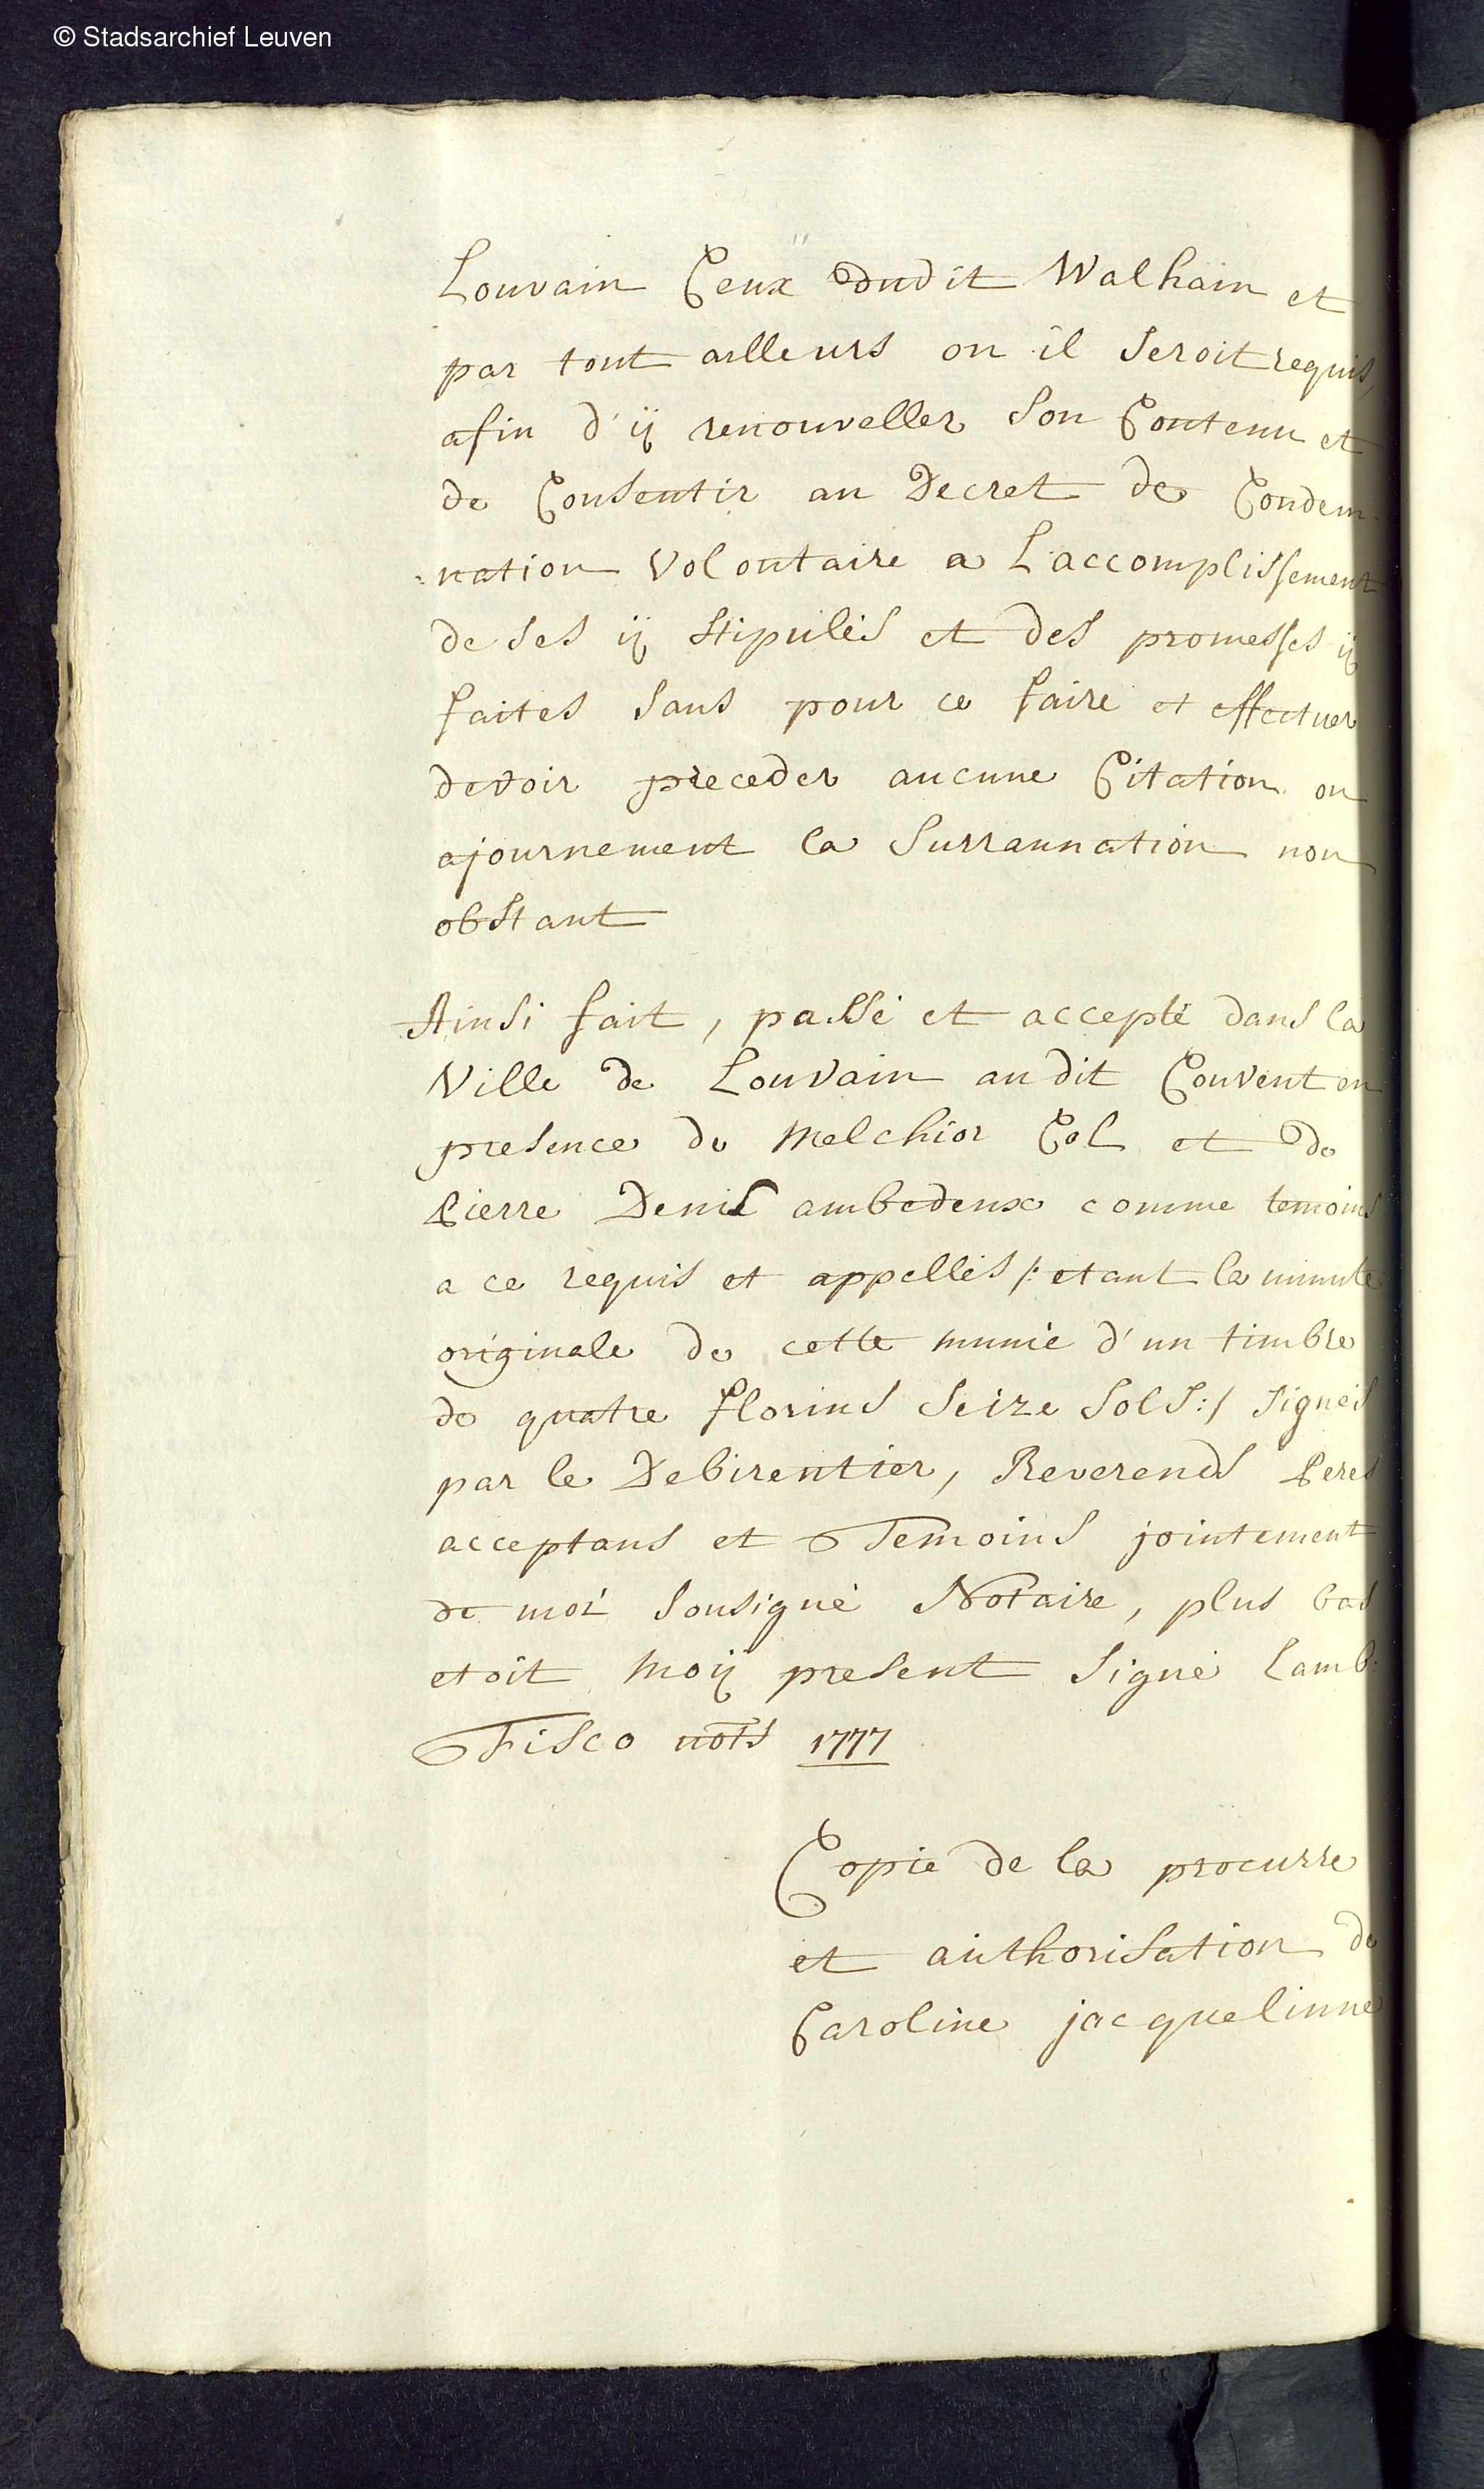 © Stadsarchief Leuven
Louvain Ceux dudit Walhain et
par tout ailleurs ou il seroit requis,
afin d'ÿ renouveller son Contenu et
de Consentir au Decret de Condem-
-nation volontaire a L'accomplissement
de ses ÿ stipulés et des promesses ÿ
faites sans pour ce faire et effectuer
devoir preceder aucune Citation ou
ajournement la surrannation non
obstant
Ainsi fait, passé et accepté dans la
Ville de Louvain audit Couvent en
presence de Melchior Col et de
Pierre Denis ambedeux comme temoins
a ce requis et appellés /: etant la minute
originale de cette munie d'un timbre
de quatre florins seize sols :/ signés
par le Debirentier, Reverends Peres
acceptans et Temoins jointement
de moi sousigné Notaire, plus bas
etoit moÿ present signé Lamb:
Fisco nots 1777
Copie de la procurre
et authorisation de
Caroline jacquelinne